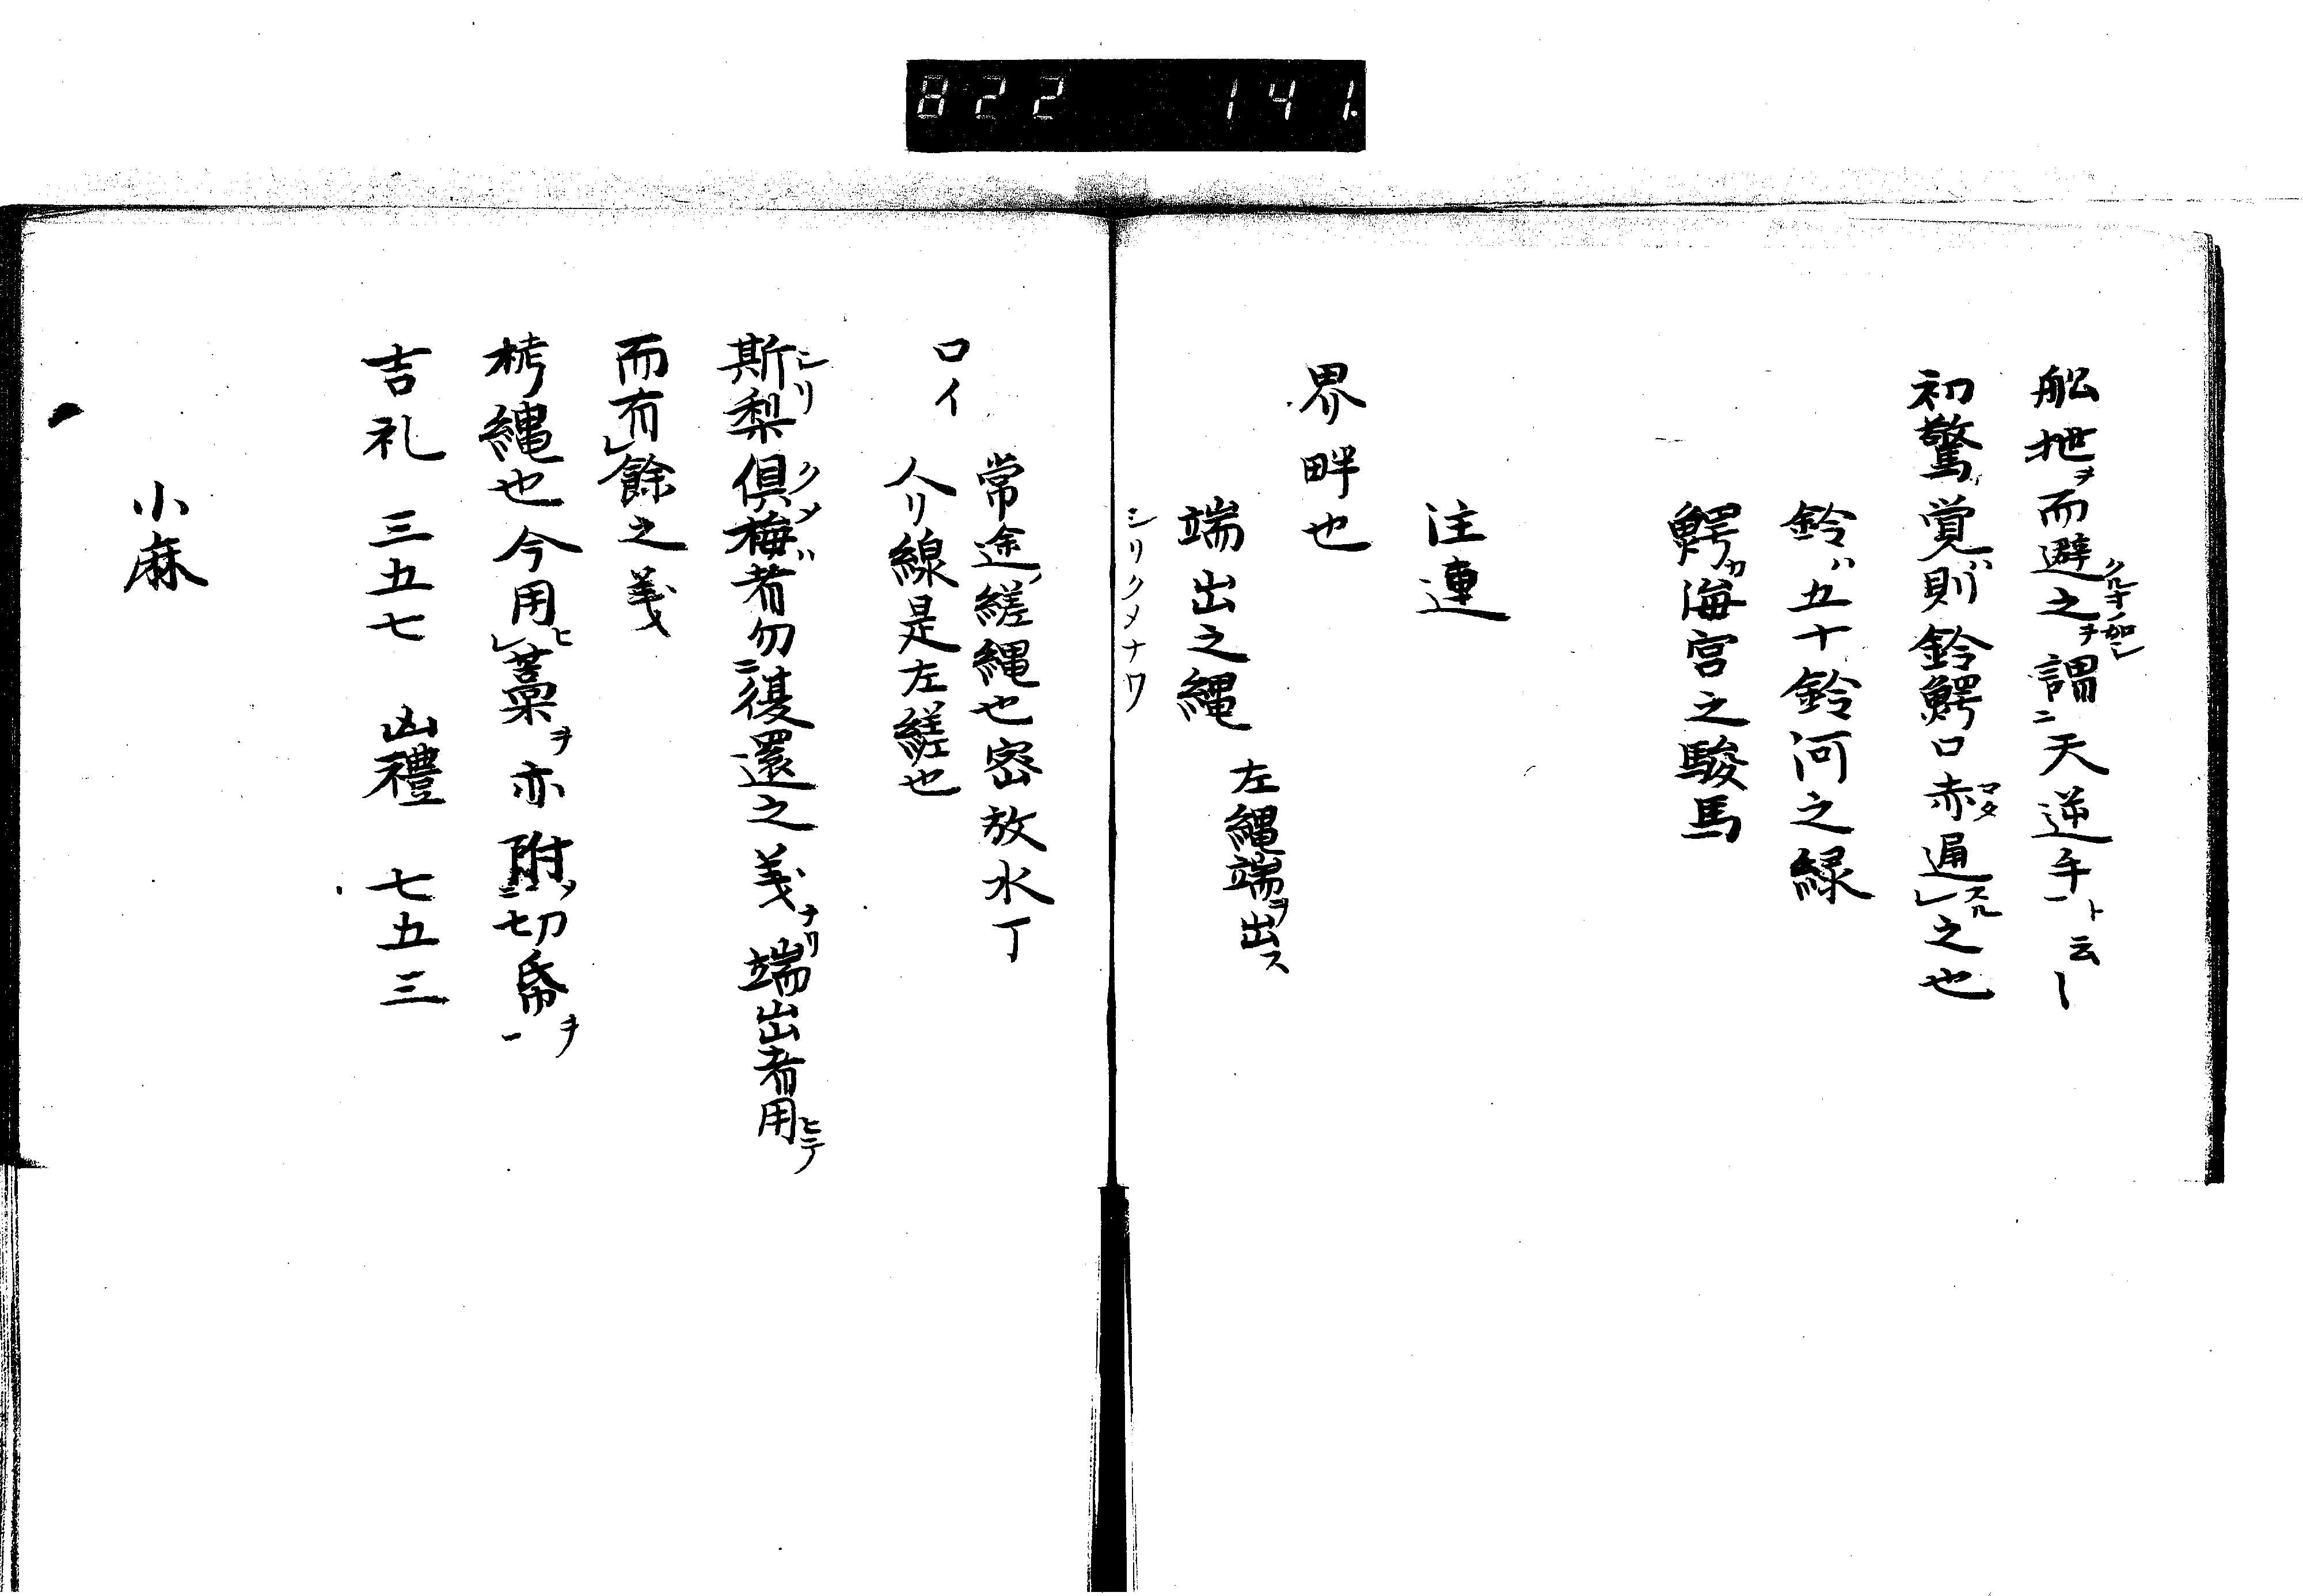 822 141
船扡ヲ而避之ヲ謂ニ天逆手一ト云〡
初驚覚ハ則鈴鰐口赤マタ逼レスル之也
鈴ハ五十鈴河之緑
鰐カ海宮之駿馬
注連
界畔也
端出之縄 左縄端ヲ出ス
シリクメナワ
口イ 常途ノ縒縄也密放水丁
介リ線是左縒也
斯梨シリ倶梅クメハ者勿ニ復還之義ナリ端出者用ヒテ
而有レ餘之義
栲縄也今用ヒレ藁ヲ亦附ニ切帋ヲ一
吉礼 三五七 凶禮 七五三
小麻